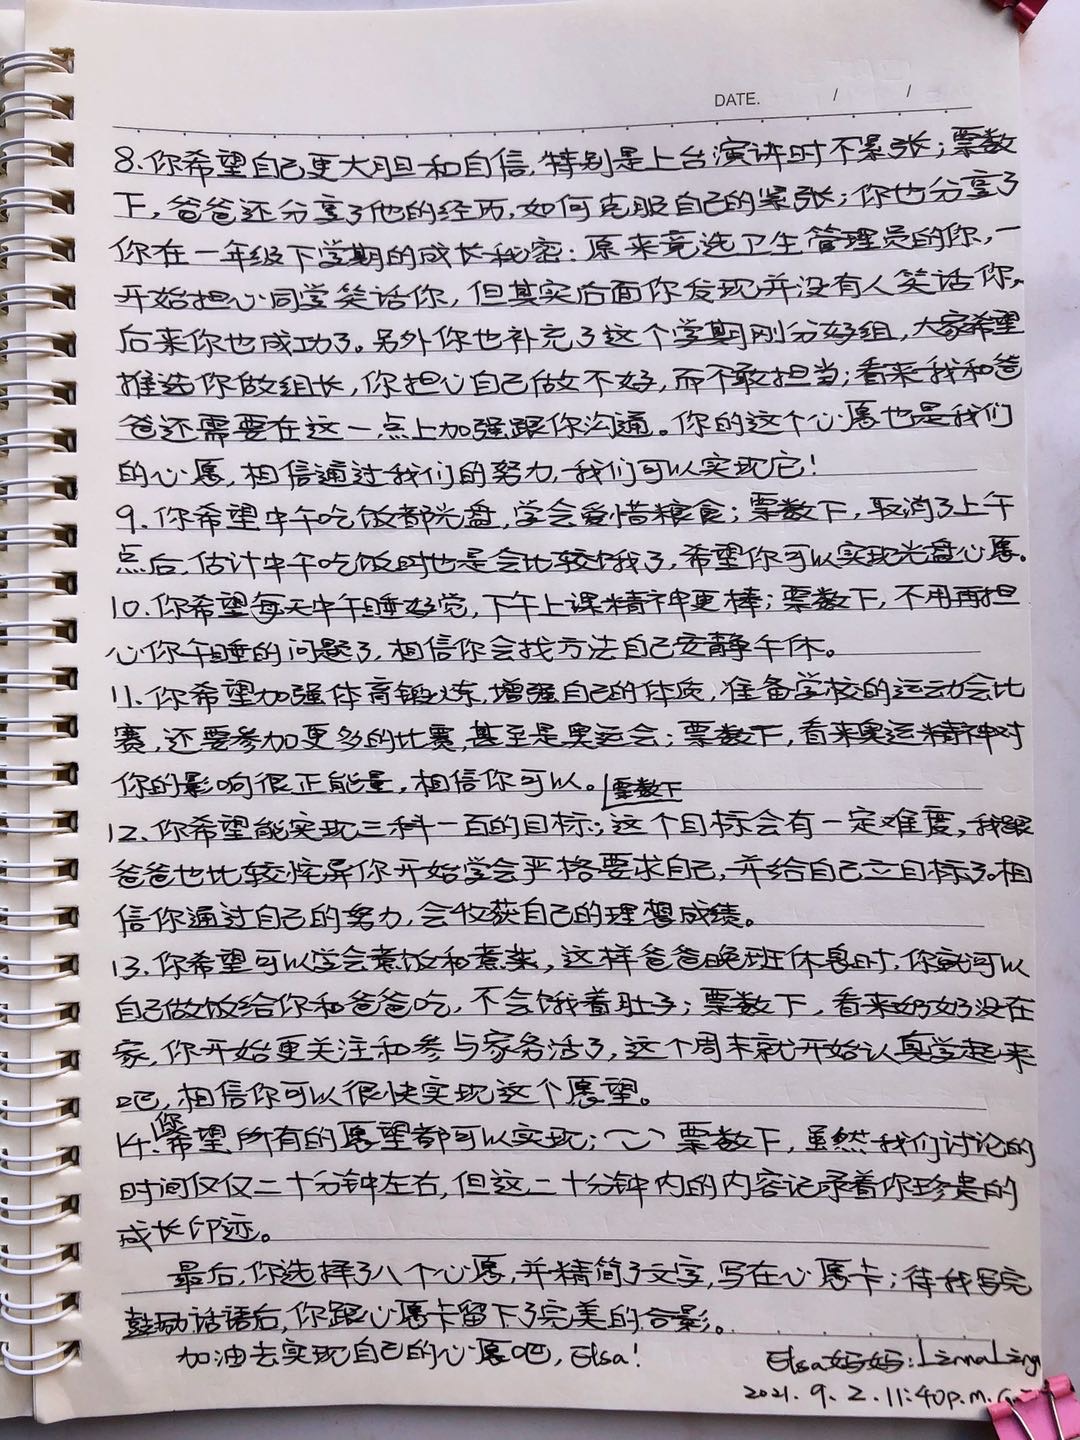 DATE. / /
8.你希望自己更大胆和自信,特别是上台演讲时不紧张;票数
下,爸爸还分享了他的经历,如何克服自己的紧张;你也分享了
你在一年级下学期的成长秘密:原来竞选卫生管理员的你,一
开始担心同学笑话你,但其实后面你发现并没有人笑话你,
后来你也成功了。另外你也补充了这个学期刚分好组,大家希望
推选你做组长,你担心自己做不好,而不敢担当;看来我和爸
爸还需要在这一点上加强跟你沟通。你的这个心愿也是我们
的心愿,相信通过我们的努力,我们可以实现它!
9.你希望中午吃饭都光盘,学会爱惜粮食;票数下,取消了上午
点后,估计中午吃饭时也是会比较饿了,希望你可以实现光盘心愿。
10.你希望每天中午睡好觉,下午上课精神更棒;票数下,不用再担
心你午睡的问题了,相信你会找方法自己安静午休。
11.你希望加强体育锻炼,增强自己的体质,准备学校的运动会比
赛,还要参加更多的比赛,甚至是奥运会;票数下,看来奥运精神对
你的影响很正能量,相信你可以。
票数下
12.你希望能实现三科一百的目标;这个目标会有一定难度,我跟
爸爸也比较惊异你开始学会严格要求自己,并给自己立目标了。相
信你通过自己的努力,会收获自己的理想成绩。
13.你希望可以学会煮饭和煮菜,这样爸爸晚班休息时,你就可以
自己做饭给你和爸爸吃,不会饿着肚子;票数下,看来奶奶没在
家,你开始更关注和参与家务活了,这个周末就开始认真学起来
吧,相信你可以很快实现这个愿望。
14.你希望所有的愿望都可以实现;票数下,虽然我们讨论的
时间仅仅二十分钟左右,但这二十分钟内的内容记录着你珍贵的
成长印迹。
最后,你选择了八个心愿,并精简了文字,写在心愿卡;待我写完
鼓励话语后,你跟心愿卡留下了完美的合影。
加油去实现自己的心愿吧,Elsa!
Elsa妈妈:
2021.9.2.11:40p.m.